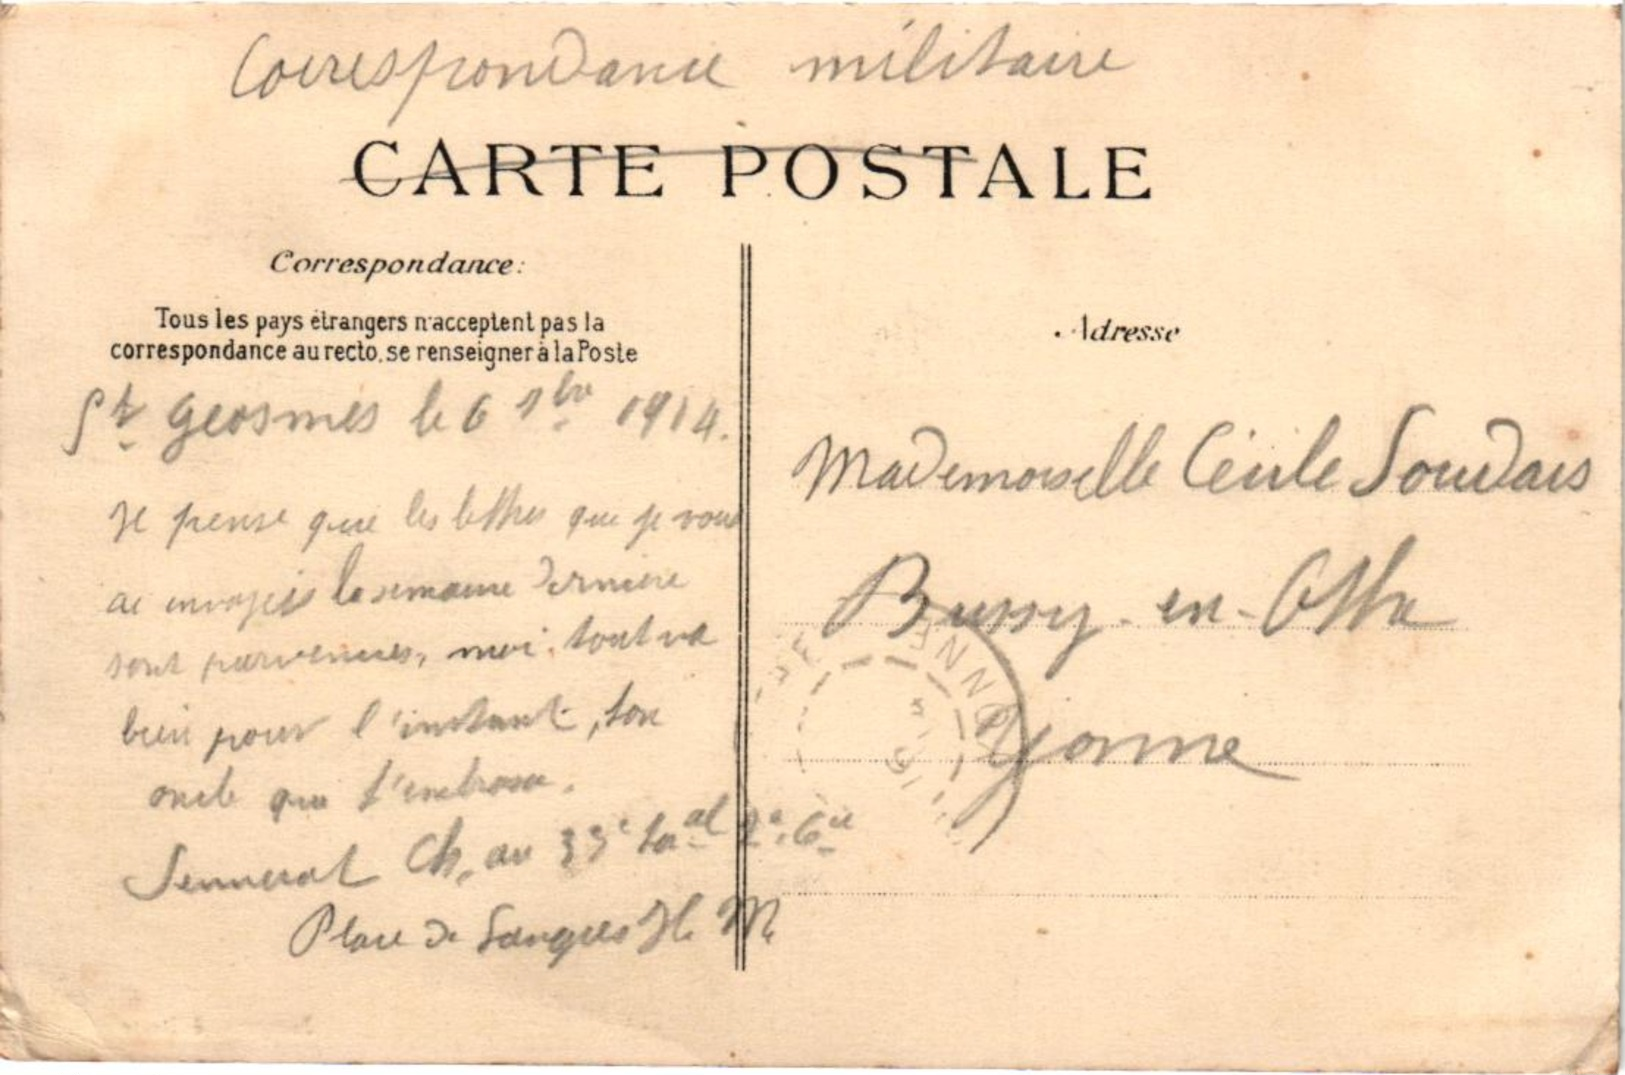 Correspondance militaire
CARTE POSTALE
Correspondance:
Tous les pays étrangers n'acceptent pas la
correspondance au recto, se renseigner à la Poste
St Geosmes le 6 9bre 1914.
Je pense que les lettres que je vous
ai envoyés la semaine dernière
sont parvenues, moi tout va
bien pour l'instant, ton
oncle qui t'embrasse.
Ch. au 33e tal 2e Cie
Place de Langres H. M.
Adresse
Mademoiselle Cécile Soudais
Bussy-en-Othe
Yonne